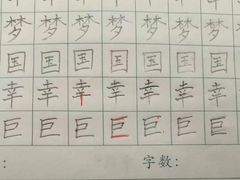 梦梦梦梦梦梦梦
国国国国国国国
幸幸幸幸幸幸幸
巨巨巨巨巨巨巨
: 字数: